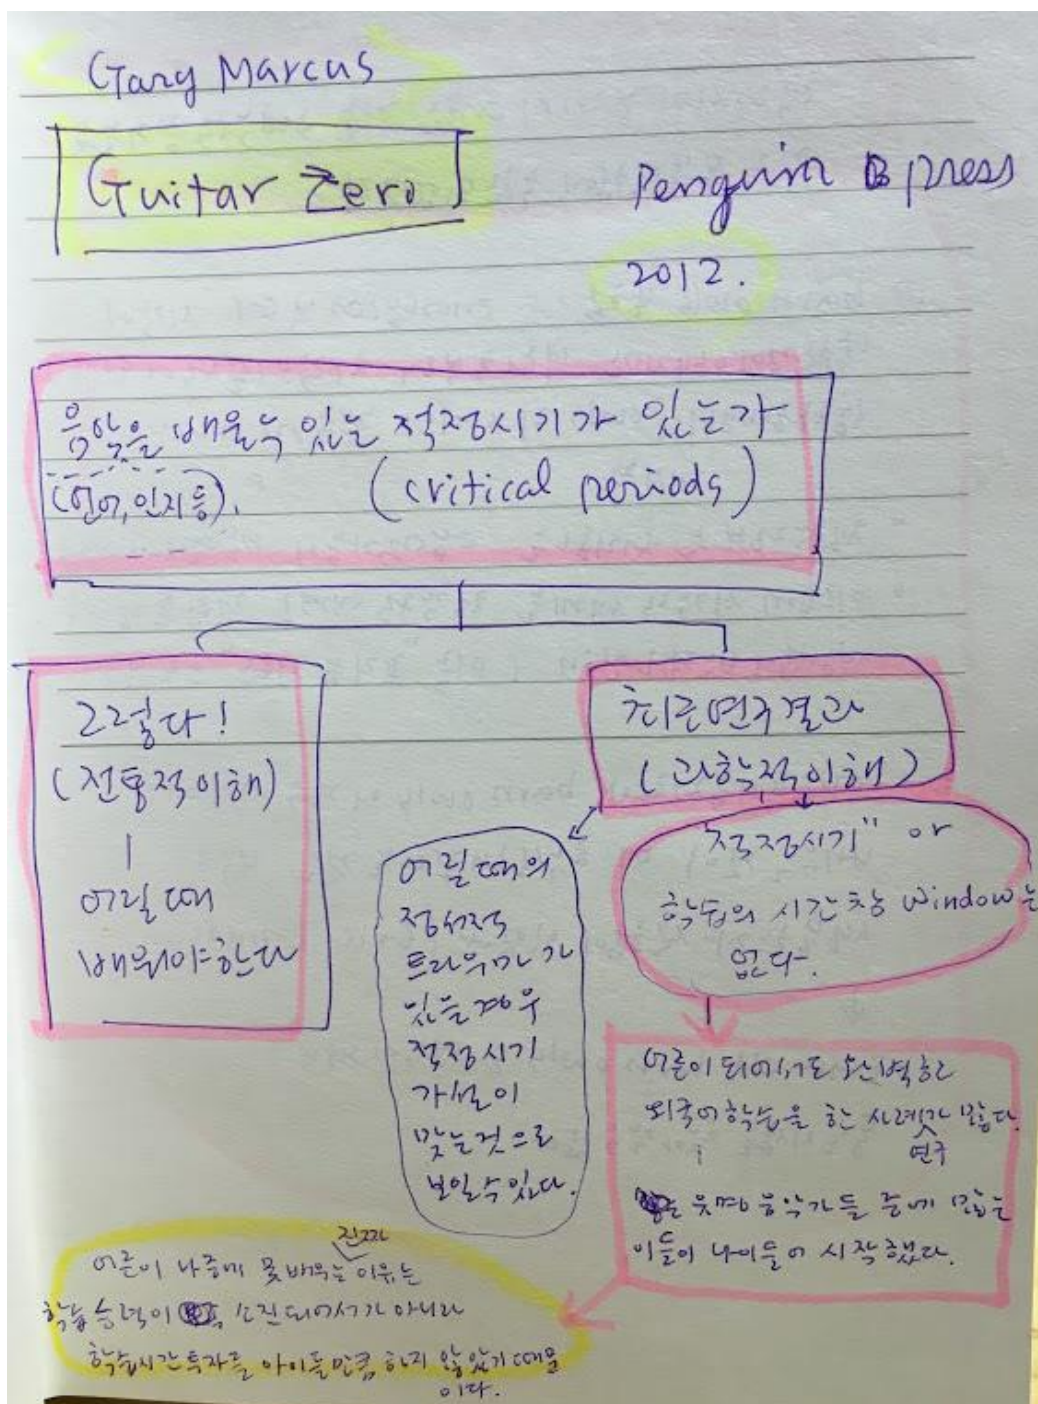 Gary Marcus
Guitar Zero
Penguin press
2012.
음악을 배울수 있는 적정시기가 있는가
(언어, 인지 등). (critical periods)
그렇다!
(전통적이해)
어릴때
배워야한다
최근연구결과
(과학적이해)
어릴때의
정서적
트라우마가
있을경우
적정시기
가설이
맞는것으로
보일수있다.
"적정시기" or
학습의 시간창 window는
없다.
어른이 되어서도 완벽한
외국어학습을 한 사례가 많다.
연구
유명 음악가들 중에 많은
이들이 나이들어 시작했다.
진짜
어른이 나중에 못배우는 이유는
학습능력이 소진되어서가 아니라
학습시간투자를 아이들만큼 하지 않았기때문
이다.